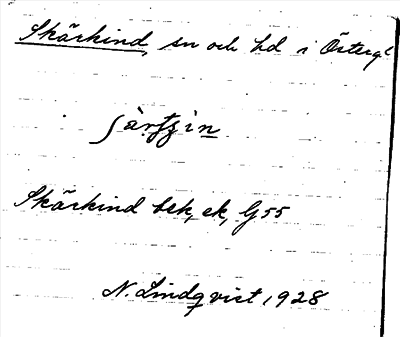 Skärkind, sn och hd i Östergl
Skärkind bek, ek, G55
N. Lindqvist, 1928